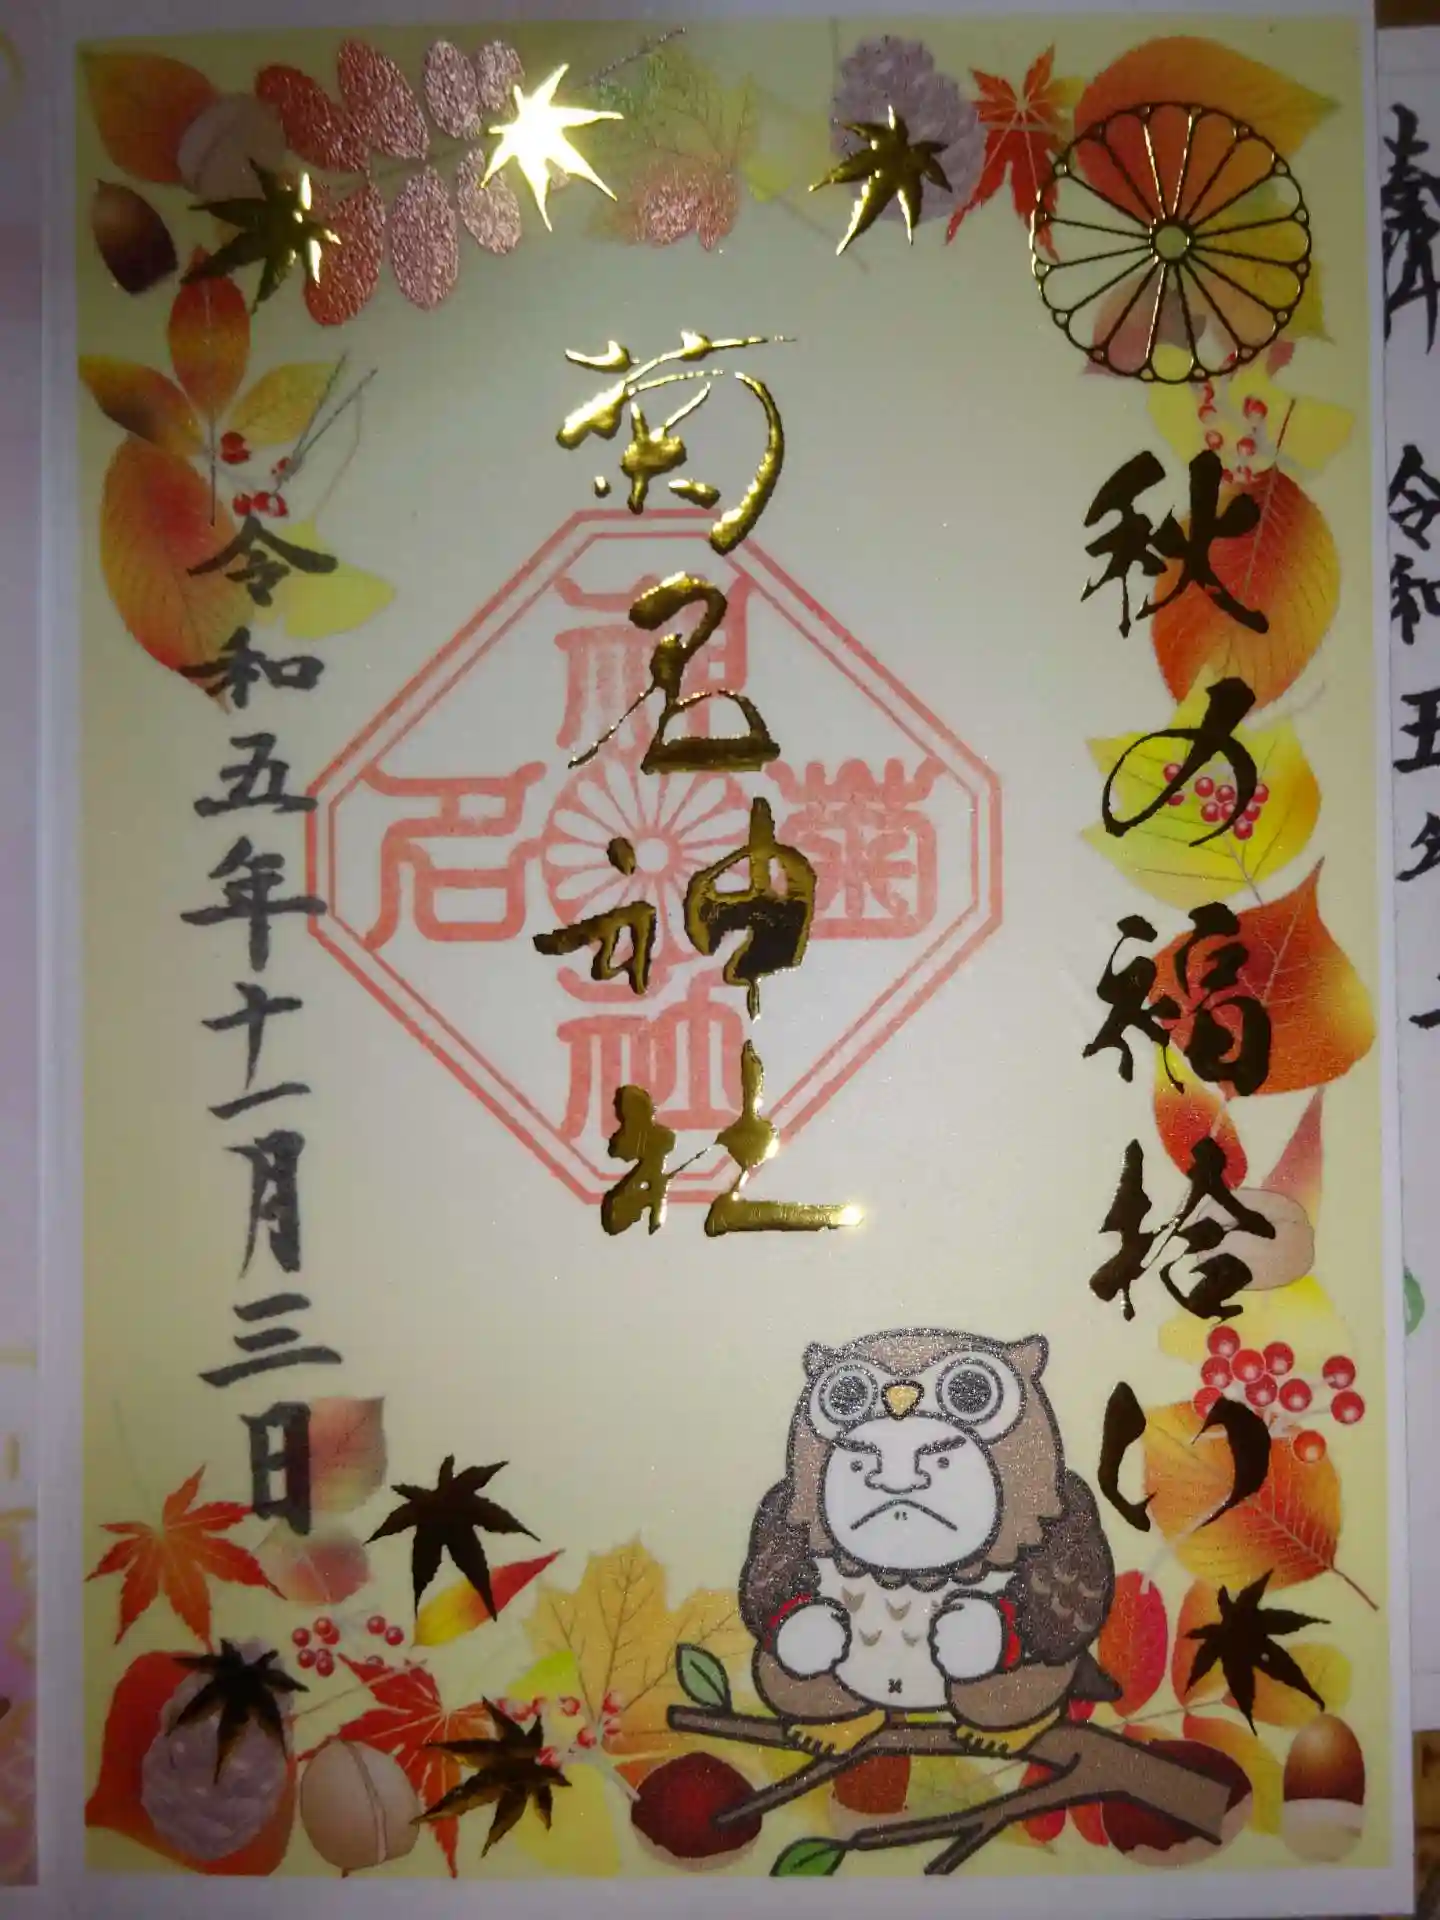 令和五
秋の福拾い
菊名神社
菊名神社
令和五年十一月三日